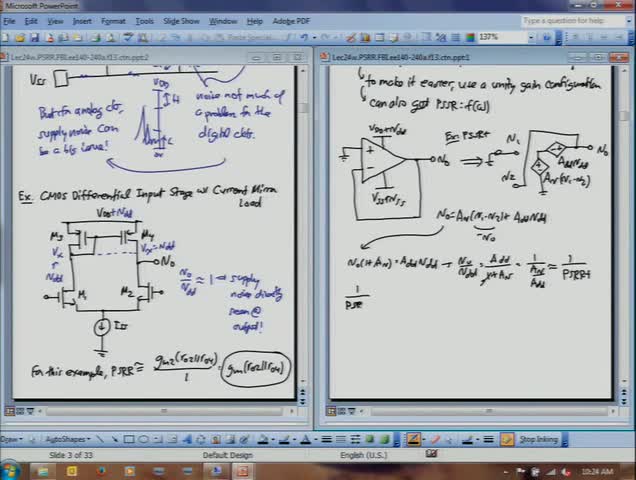 Microsoft PowerPoint
File Edit View Insert Format Tools Slide Show Window Help Adobe PDF
Type a question for help
137%
Lec24w.PSRR.FBLee140-240a.f13.ctn.ppt:2
VSS
VDD
But for analog ckts,
supply noise can
be a big issue!
noise not much of
a problem for the
digital ckts.
Ex. CMOS Differential Input Stage w/ Current Mirror
Load
VDD+Ndd
M3
M4
Vx
Vx=Ndd
Ndd
No
M1
M2
No/Ndd ≈ 1 → supply
noise directly
seen @
output!
ISS
For this example, PSRR ≅ gm2(ro2||ro4)/1 = gm(ro2||ro4)
Lec24w.PSRR.FBLee140-240a.f13.ctn.ppt:1
to make it easier, use a unity gain configuration
can also get PSRR=f(ω)
Ex: PSRR+
VDD+Ndd
No
VSS+NSS
N1
N2
AddNdd
Av(N1-N2)
No
No=Av(N1-N2)+AddNdd
-No
No(1+Av)=AddNdd → No/Ndd = Add/(1+Av) = 1/(Av/Add) ≅ 1/PSRR+
1/PSR
Draw AutoShapes
Stop Inking
Slide 3 of 33
Default Design
English (U.S.)
10:24 AM